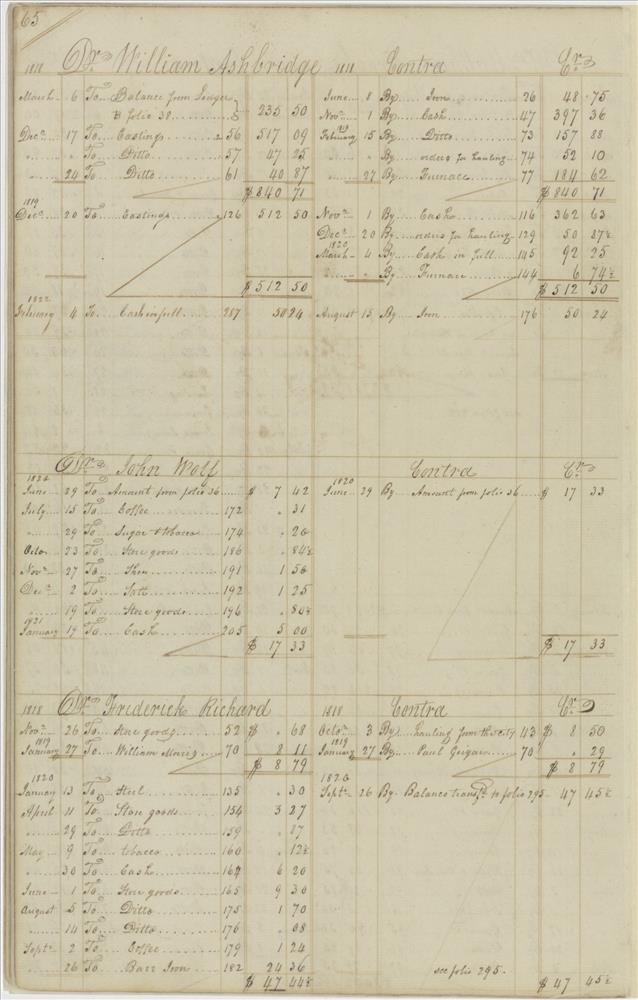 65
1818 Dr. William Ashbridge 1818 Contra Cr.
March 6 To Balance from Leager
& folio 38 235 50
June 8 By Iron 26 48 75
Nov. 1 By Cash 47 397 36
Dec. 17 To Castings 56 517 09
1819
February 15 By Ditto 73 157 88
" " To Ditto 57 47 25
" " By orders for hauling 74 52 10
" 24 To Ditto 61 40 87
" 27 By Furnace 77 184 62
$ 840 71
$ 840 71
1819
Dec. 20 To Castings 126 512 50
Nov. 1 By Cash 116 362 63
Dec. 20 By orders for hauling 129 50 87½
1820
March 4 By Cash in full 145 92 25
" " By Furnace 144 6 74½
$ 512 50
$ 512 50
1822
February 4 To Cash in full 287 50 24
August 15 By Iron 176 50 24
Dr. John Wolf Contra Cr.
1820
June 29 To Amount from folio 36 $ 7 42
1820
June 29 By Amount from folio 36 $ 17 33
July 15 To Coffee 172 " 31
" 29 To Sugar & tobacco 174 " 26
Octo. 23 To Store goods 186 " 84½
Nov. 27 To Shoes 191 1 56
Dec. 2 To Salt 192 1 25
" 19 To Store goods 196 " 80½
1821
January 19 To Cash 205 5 00
$ 17 33
$ 17 33
1818 Dr. Frederick Richard 1818 Contra Cr.
Nov. 26 To Store goods 52 $ " 68
Octo. 3 By hauling from the city 43 $ 8 50
1819
January 27 To William Morris 70 8 11
1819
January 27 By Paul Geiger 70 " 29
$ 8 79
$ 8 79
1820
January 13 To Steel 135 " 30
1820
Sept. 26 By Balance transfd. to folio 295 47 45½
April 11 To Store goods 154 3 27
" 29 To Ditto 159 " 87
May 9 To tobacco 160 " 12½
" 30 To Cash 164 6 20
June 1 To Store goods 165 9 30
August 5 To Ditto 175 1 70
" 14 To Ditto 176 " 08
Sept. 2 To Coffee 179 1 24
" 26 To Barr Iron 182 24 36
see folio 295.
$ 47 44½
$ 47 45½